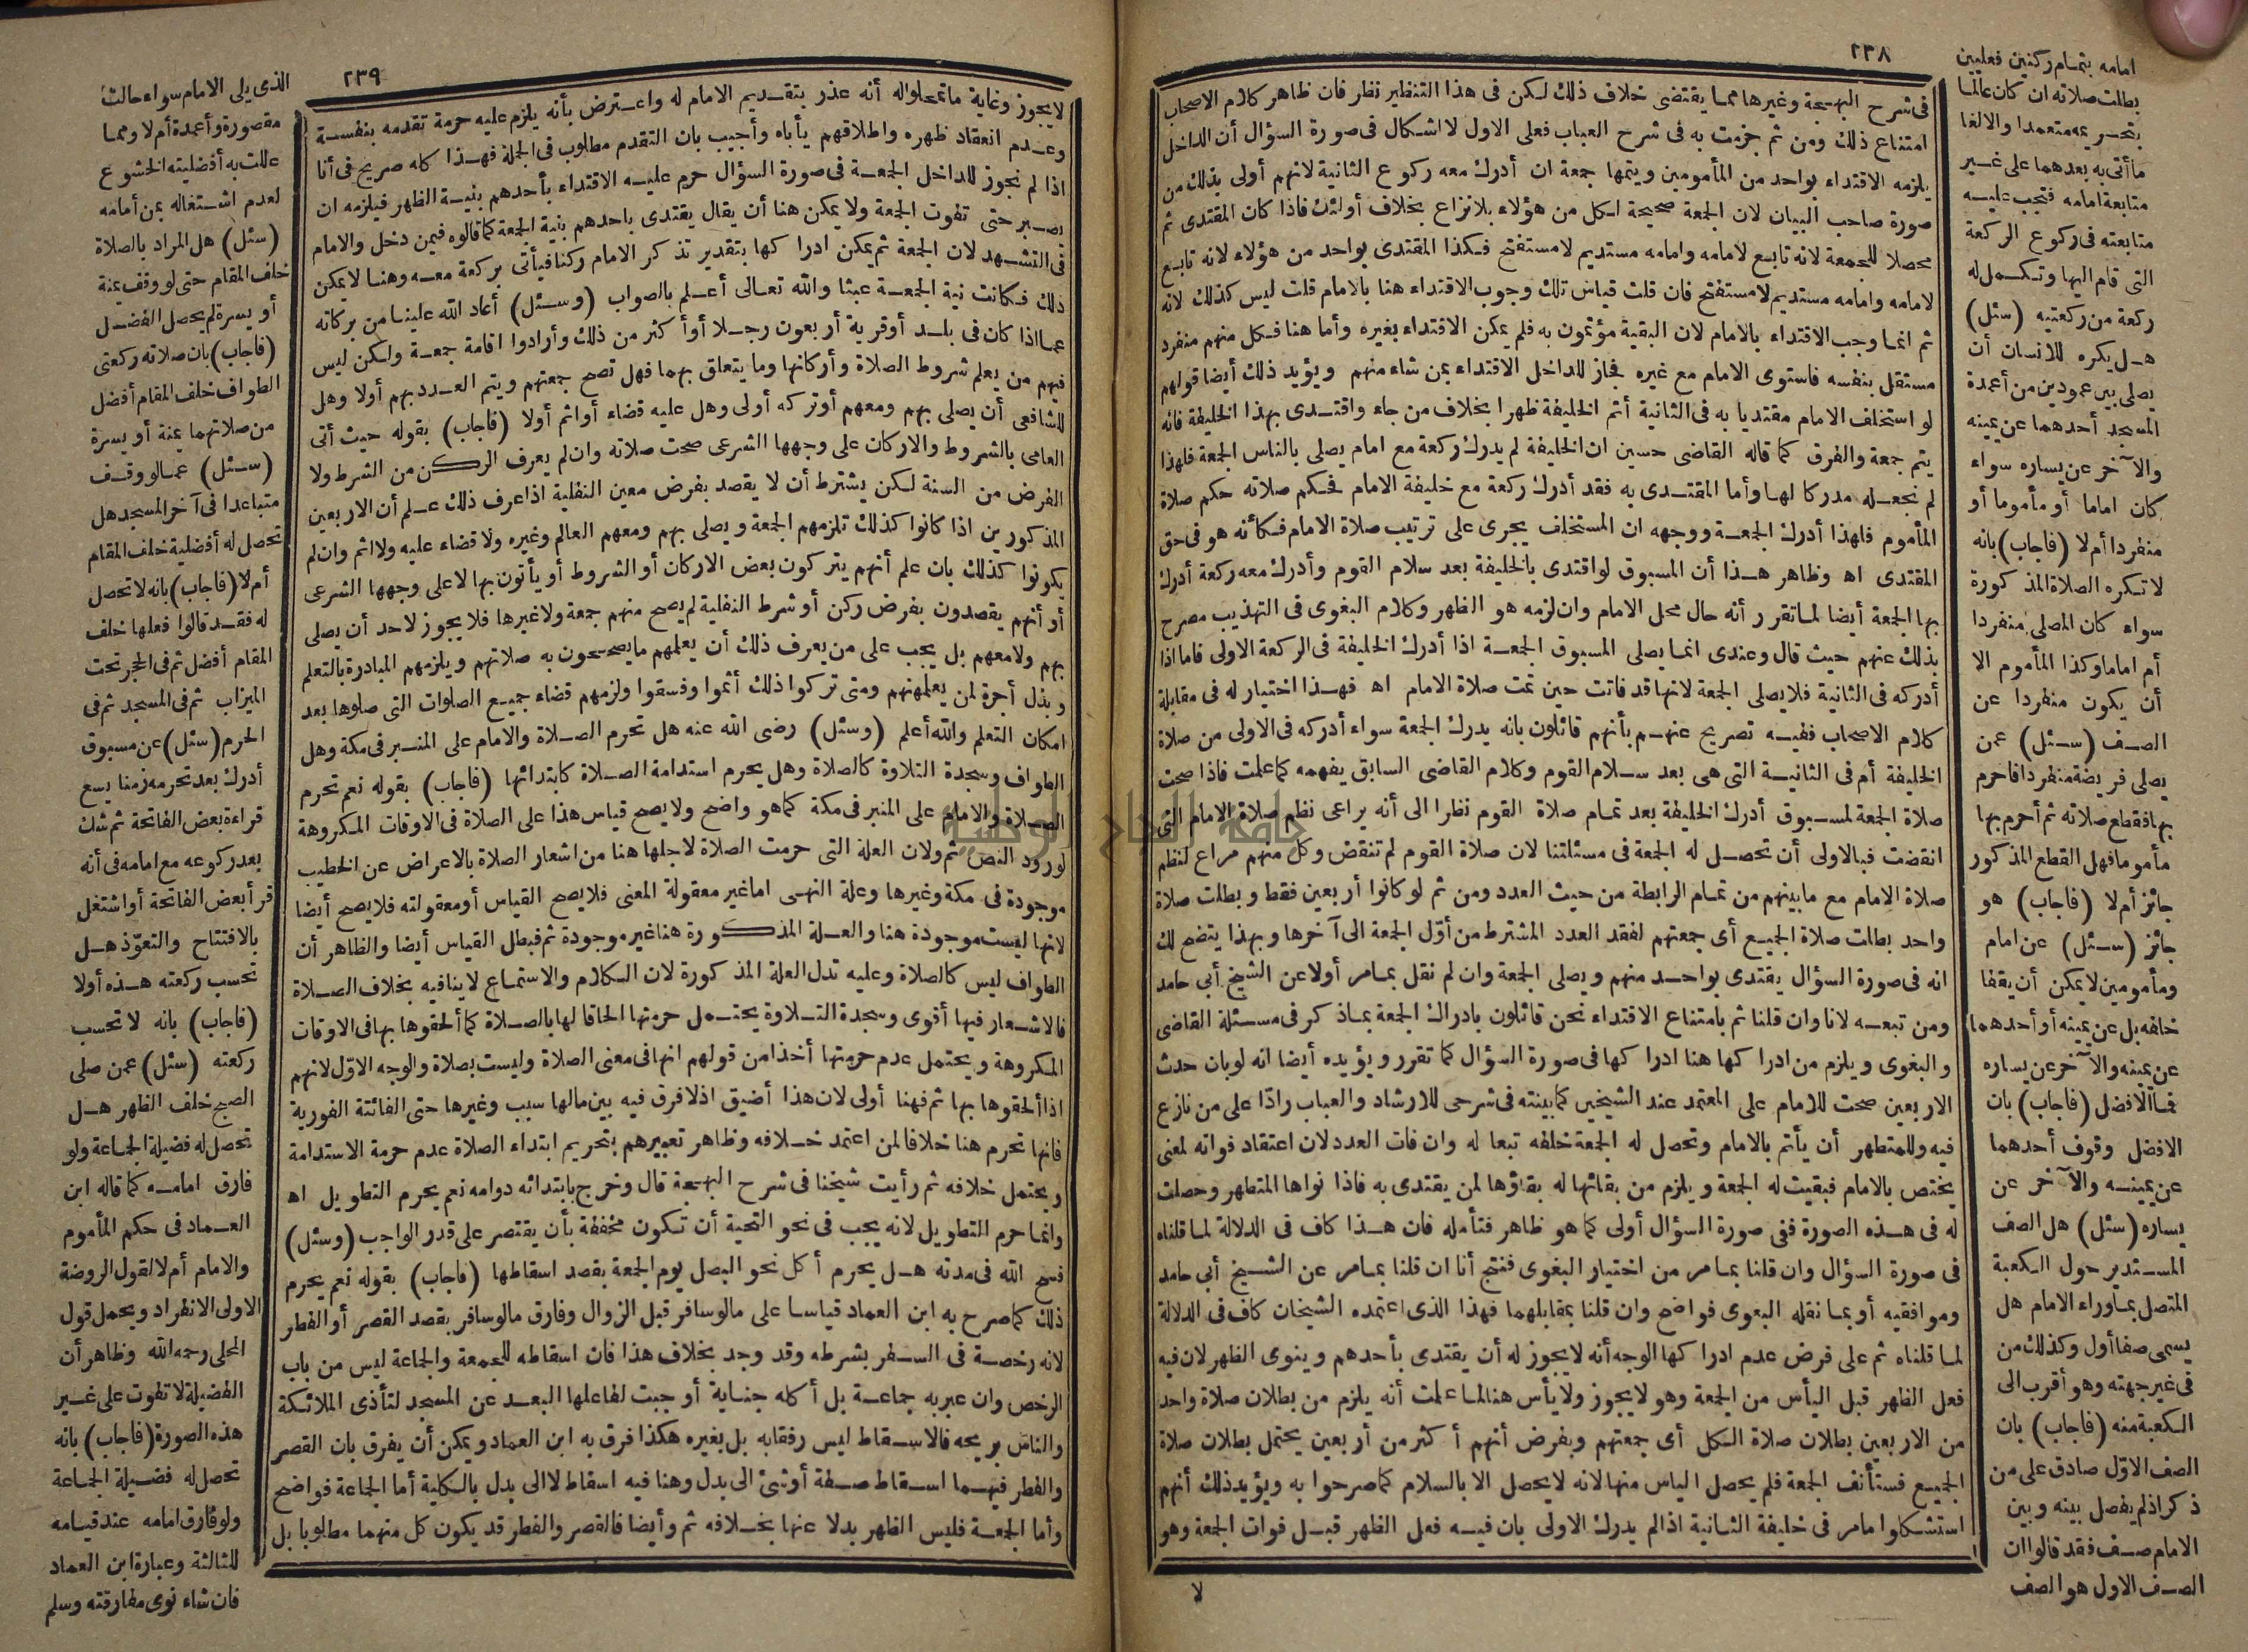 ٢٣٨
فى شرح البهجة وغيرها مما يقتضى خلاف ذلك لكن فى هذا التنظير نظر فان ظاهر كلام الاصحاب
امتناع ذلك ومن ثم جزمت به فى شرح العباب فعلى الاول لا اشكال فى صورة السؤال أن الداخل
يلزمه الاقتداء بواحد من المأمومين ويتمها جمعة ان أدرك معه ركوع الثانية لانهم أولى بذلك من
صورة صاحب البيان لان الجمعة صحيحة لكل من هؤلاء بلا نزاع بخلاف أولئك فاذا كان المقتدى ثم
محصلا للجمعة لانه تابع لامامه وامامه مستديم لا مستفتح فكذا المقتدى بواحد من هؤلاء لانه تابع
لامامه وامامه مستديم لا مستفتح فان قلت قياس تلك وجوب الاقتداء هنا بالامام قلت ليس كذلك لانه
ثم انما وجب الاقتداء بالامام لان البقية مؤتمون به فلم يمكن الاقتداء بغيره وأما هنا فكل منهم منفرد
مستقل بنفسه فاستوى الامام مع غيره فجاز للداخل الاقتداء بمن شاء منهم ويؤيد ذلك أيضا قولهم
لو استخلف الامام مقتديا به فى الثانية أتم الخليفة ظهرا بخلاف من جاء واقتدى بهذا الخليفة فانه
يتم جمعة والفرق كما قاله القاضى حسين ان الخليفة لم يدرك ركعة مع امام يصلى بالناس الجمعة فلهذا
لم نجعله مدركا لها وأما المقتدى به فقد أدرك ركعة مع خليفة الامام فحكم صلاته حكم صلاة
المأموم فلهذا أدرك الجمعة ووجهه ان المستخلف يجرى على ترتيب صلاة الامام فكأنه هو فى حق
المقتدى اه وظاهر هذا أن المسبوق لو اقتدى بالخليفة بعد سلام القوم وأدرك معه ركعة أدرك
بها الجمعة أيضا لما تقرر أنه حال محل الامام وان لزمه هو الظهر وكلام البغوى فى التهذيب مصرح
بذلك عنهم حيث قال وعندى انما يصلى المسبوق الجمعة اذا أدرك الخليفة فى الركعة الاولى فاما اذا
أدركه فى الثانية فلا يصلى الجمعة لانها قد فاتت حين تمت صلاة الامام اه فهذا اختيار له فى مقابلة
كلام الاصحاب ففيه تصريح عنهم بأنهم قائلون بانه يدرك الجمعة سواء أدركه فى الاولى من صلاة
الخليفة أم فى الثانية التى هى بعد سلام القوم وكلام القاضى السابق يفهمه كما علمت فاذا صحت
صلاة الجمعة لمسبوق أدرك الخليفة بعد تمام صلاة القوم نظرا الى أنه يراعى نظم صلاة الامام التى
انقضت فبالاولى أن تحصل له الجمعة فى مسئلتنا لان صلاة القوم لم تنقض وكل منهم مراع لنظم
صلاة الامام مع ما بينهم من تمام الرابطة من حيث العدد ومن ثم لو كانوا أربعين فقط وبطلت صلاة
واحد بطلت صلاة الجميع أى جمعتهم لفقد العدد المشترط من أوّل الجمعة الى آخرها وبهذا يتضح لك
انه فى صورة السؤال يقتدى بواحد منهم ويصلى الجمعة وان لم نقل بما مر أولا عن الشيخ أبى حامد
ومن تبعه لانا وان قلنا ثم بامتناع الاقتداء نحن قائلون بادراك الجمعة بما ذكر فى مسئلة القاضى
والبغوى ويلزم من ادراكها هنا ادراكها فى صورة السؤال كما تقرر ويؤيده أيضا انه لو بان حدث
الاربعين صحت للامام على المعتمد عند الشيخين كما بينته فى شرحى للارشاد والعباب رادّا على من نازع
فيه وللمتطهر أن يأتم بالامام وتحصل له الجمعة خلفه تبعا له وان فات العدد لان اعتقاد فواته لمعنى
يختص بالامام فبقيت له الجمعة ويلزم من بقائها له بقاؤها لمن يقتدى به فاذا نواها المتطهر وحصلت
له فى هذه الصورة ففى صورة السؤال أولى كما هو ظاهر فتأمله فان هذا كاف فى الدلالة لما قلناه
فى صورة السؤال وان قلنا بما مر من اختيار البغوى فنتج أنا ان قلنا بما مر عن الشيخ أبى حامد
وموافقيه أو بما نقله البغوى فواضح وان قلنا بمقابلهما فهذا الذى اعتمده الشيخان كاف فى الدلالة
لما قلناه ثم على فرض عدم ادراكها الوجه أنه لا يجوز له أن يقتدى بأحدهم وينوى الظهر لان فيه
فعل الظهر قبل اليأس من الجمعة وهو لا يجوز ولا يأس هنا لما علمت أنه يلزم من بطلان صلاة واحد
من الاربعين بطلان صلاة الكل أى جمعتهم وبفرض أنهم أكثر من أربعين يحتمل بطلان صلاة
الجميع فستأنف الجمعة فلم يحصل الياس منها لانه لا يحصل الا بالسلام كما صرحوا به ويؤيد ذلك أنهم
استشكلوا ما مر فى خليفة الثانية اذا لم يدرك الاولى بان فيه فعل الظهر قبل فوات الجمعة وهو
لا
امامه بتمام ركنين فعليين
بطلت صلاته ان كان عالما
بتحريمه متعمدا والا لغا
ما أتى به بعدهما على غير
متابعة امامه فتجب عليه
متابعته فى ركوع الركعة
التى قام اليها وتكمل له
ركعة من ركعتيه (سئل)
هل يكره للانسان أن
يصلى بين عمودين من أعمدة
المسجد أحدهما عن يمينه
والآخر عن يساره سواء
كان اماما أو مأموما أو
منفردا أم لا (فاجاب) بانه
لا تكره الصلاة المذكورة
سواء كان المصلى منفردا
أم اماما وكذا المأموم الا
أن يكون منفردا عن
الصف (سئل) عمن
يصلى فريضة منفردا فاحرم
بها فقطع صلاته ثم أحرم بها
مأموما فهل القطع المذكور
جائز أم لا (فاجاب) هو
جائز (سئل) عن امام
ومأمومين لا يمكن أن يقفا
خلفه بل عن يمينه أو أحدهما
عن يمينه والآخر عن يساره
فما الافضل (فاجاب) بان
الافضل وقوف أحدهما
عن يمينه والآخر عن
يساره (سئل) هل الصف
المستدير حول الكعبة
المتصل بما وراء الامام هل
يسمى صفا أول وكذلك من
فى غير جهته وهو أقرب الى
الكعبة منه (فاجاب) بان
الصف الاوّل صادق على من
ذكر اذ لم يفصل بينه وبين
الامام صف فقد قالوا ان
الصف الاول هو الصف
٢٣٩
لا يجوز وغاية ما تمحلوا له أنه عذر بتقديم الامام له واعترض بأنه يلزم عليه حرمة تقدمه بنفسه
وعدم انعقاد ظهره واطلاقهم يأباه وأجيب بان التقدم مطلوب فى الجملة فهذا كله صريح فى أنا
اذا لم نجوز للداخل الجمعة فى صورة السؤال حرم عليه الاقتداء بأحدهم بنية الظهر فيلزمه ان
يصبر حتى تفوت الجمعة ولا يمكن هنا أن يقال يقتدى باحدهم بنية الجمعة كما قالوه فيمن دخل والامام
فى التشهد لان الجمعة ثم يمكن ادراكها بتقدير تذكر الامام ركنا فيأتى بركعة معه وهنا لا يمكن
ذلك فكانت نية الجمعة عبثا والله تعالى أعلم بالصواب (وسئل) أعاد الله علينا من بركاته
عما اذا كان فى بلد أو قرية أربعون رجلا أو أكثر من ذلك وأرادوا اقامة جمعة ولكن ليس
فيهم من يعلم شروط الصلاة وأركانها وما يتعلق بهما فهل تصح جمعتهم ويتم العدد بهم أولا وهل
للشافعى أن يصلى بهم ومعهم أو تركه أولى وهل عليه قضاء أو اثم أولا (فاجاب) بقوله حيث أتى
العامى بالشروط والاركان على وجهها الشرعى صحت صلاته وان لم يعرف الركن من الشرط ولا
الفرض من السنة لكن يشترط أن لا يقصد بفرض معين النفلية اذا عرف ذلك علم أن الاربعين
المذكورين اذا كانوا كذلك تلزمهم الجمعة ويصلى بهم ومعهم العالم وغيره ولا قضاء عليه ولا اثم وان لم
يكونوا كذلك بان علم أنهم يتركون بعض الاركان أو الشروط أو يأتون بها لا على وجهها الشرعى
أو أنهم يقصدون بفرض ركن أو شرط النفلية لم يصح منهم جمعة ولا غيرها فلا يجوز لاحد أن يصلى
بهم ولا معهم بل يجب على من يعرف ذلك أن يعلمهم ما يصححون به صلاتهم ويلزمهم المبادرة بالتعلم
وبذل أجرة لمن يعلمهم ومتى تركوا ذلك أثموا وفسقوا ولزمهم قضاء جميع الصلوات التى صلوها بعد
امكان التعلم والله أعلم (وسئل) رضى الله عنه هل تحرم الصلاة والامام على المنبر فى مكة وهل
الطواف وسجدة التلاوة كالصلاة وهل يحرم استدامة الصلاة كابتدائها (فاجاب) بقوله نعم تحرم
الصلاة والامام على المنبر فى مكة كما هو واضح ولا يصح قياس هذا على الصلاة فى الاوقات المكروهة
لورود النص ثم ولان العلة التى حرمت الصلاة لاجلها هنا من اشعار الصلاة بالاعراض عن الخطيب
موجودة فى مكة وغيرها وعلة النهى اما غير معقولة المعنى فلا يصح القياس أو معقولته فلا يصح أيضا
لانها ليست موجودة هنا والعلة المذكورة هنا غير موجودة ثم فبطل القياس أيضا والظاهر أن
الطواف ليس كالصلاة وعليه تدل العلة المذكورة لان الكلام والاستماع لا ينافيه بخلاف الصلاة
فالاشعار فيها أقوى وسجدة التلاوة يحتمل حرمتها الحاقا لها بالصلاة كما ألحقوها بها فى الاوقات
المكروهة ويحتمل عدم حرمتها أخذا من قولهم انها فى معنى الصلاة وليست بصلاة والوجه الاوّل لانهم
اذا ألحقوها بها ثم فهنا أولى لان هذا أضيق اذ لا فرق فيه بين مالها سبب وغيرها حتى الفائتة الفورية
فانها تحرم هنا خلافا لمن اعتمد خلافه وظاهر تعبيرهم بتحريم ابتداء الصلاة عدم حرمة الاستدامة
ويحتمل خلافه ثم رأيت شيخنا فى شرح البهجة قال وخرج بابتدائه دوامه نعم يحرم التطويل اه
وانما حرم التطويل لانه يجب فى نحو التحية أن تكون مخففة بأن يقتصر على قدر الواجب (وسئل)
فسح الله فى مدته هل يحرم أكل نحو البصل يوم الجمعة بقصد اسقاطها (فاجاب) بقوله نعم يحرم
ذلك كما صرح به ابن العماد قياسا على ما لو سافر قبل الزوال وفارق ما لو سافر بقصد القصر أو الفطر
لانه رخصة فى السفر بشرطه وقد وجد بخلاف هذا فان اسقاطه للجمعة والجماعة ليس من باب
الرخص وان عبر به جماعة بل أكله جناية أوجبت لفاعلها البعد عن المسجد لتأذى الملائكة
والناس بريحه فالاسقاط ليس رفقا به بل بغيره هكذا فرق به ابن العماد ويمكن أن يفرق بان القصر
والفطر فيهما اسقاط صفة أو شئ الى بدل وهنا فيه اسقاط لا الى بدل بالكلية أما الجماعة فواضح
وأما الجمعة فليس الظهر بدلا عنها بخلافه ثم وأيضا فالقصر والفطر قد يكون كل منهما مطلوبا بل
الذى يلى الامام سواء حالت
مقصورة وأعمدة أم لا ومما
عللت به أفضليته الخشوع
لعدم اشتغاله بمن أمامه
(سئل) هل المراد بالصلاة
خلف المقام حتى لو وقف يمنة
أو يسرة لم يحصل الفضل
(فاجاب) بان صلاته ركعتى
الطواف خلف المقام أفضل
من صلاتهما يمنة أو يسرة
(سئل) عما لو وقف
متباعدا فى آخر المسجد هل
تحصل له أفضلية خلف المقام
أم لا (فاجاب) بانه لا تحصل
له فقد قالوا فعلها خلف
المقام أفضل ثم فى الحجر تحت
الميزاب ثم فى المسجد ثم فى
الحرم (سئل) عن مسبوق
أدرك بعد تحرمه زمنا يسع
قراءة بعض الفاتحة ثم شك
بعد ركوعه مع امامه فى أنه
قرأ بعض الفاتحة أو اشتغل
بالافتتاح والتعوّذ هل
تحسب ركعته هذه أولا
(فاجاب) بانه لا تحسب
ركعته (سئل) عمن صلى
الصبح خلف الظهر هل
تحصل له فضيلة الجماعة ولو
فارق امامه كما قاله ابن
العماد فى حكم المأموم
والامام أم لا لقول الروضة
الاولى الانفراد ويحمل قول
المحلى رحمه الله وظاهر أن
الفضيلة لا تفوت على غير
هذه الصورة (فاجاب) بانه
تحصل له فضيلة الجماعة
ولو فارق امامه عند قيامه
للثالثة وعبارة ابن العماد
فان شاء نوى مفارقته وسلم
جامعة النجاح الوطنية